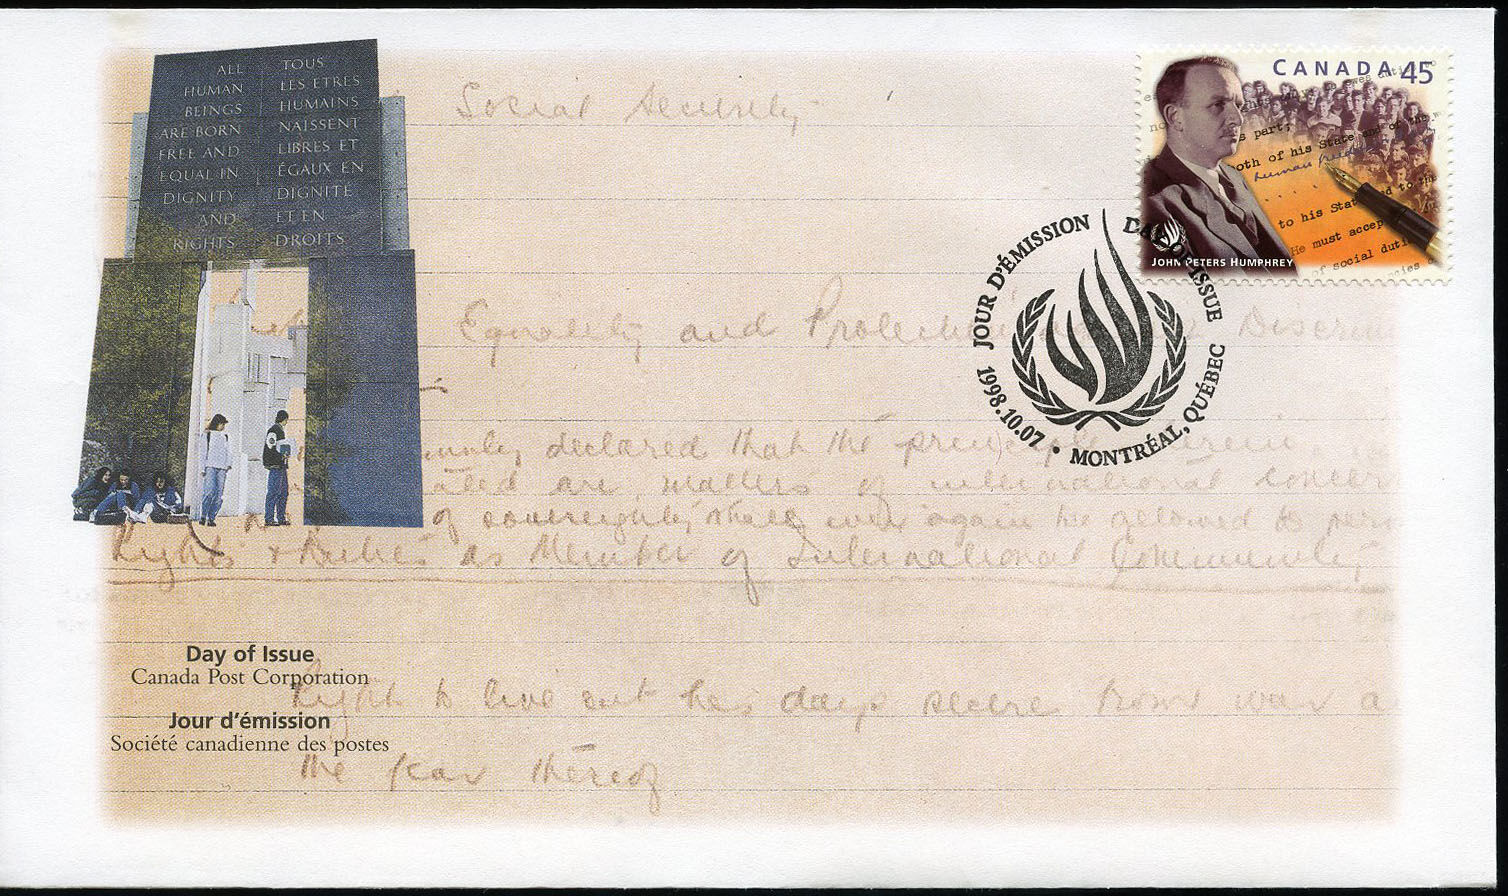 ALL
HUMAN
BEINGS
ARE BORN
FREE AND
EQUAL IN
DIGNITY
AND
RIGHTS
TOUS
LES ETRES
HUMAINS
NAISSENT
LIBRES ET
ÉGAUX EN
DIGNITE
ET EN
DROITS
Social Security
CANADA 45
s part;
oth of his State and of the
human freedo
to his Stat d to
He must accep
of social duti
JOHN PETERS HUMPHREY
JOUR D'ÉMISSION DAY OF ISSUE
1998.10.07 • MONTRÉAL, QUÉBEC
Equality and Protection Discrim
declared that the principles herein
stated are matters of international concern
of sovereignty shall ever again be allowed to
Rights & Duties as Member of International Community
Day of Issue
Canada Post Corporation
Right to live out his days secure from war a
Jour d'émission
Société canadienne des postes
the fear thereof